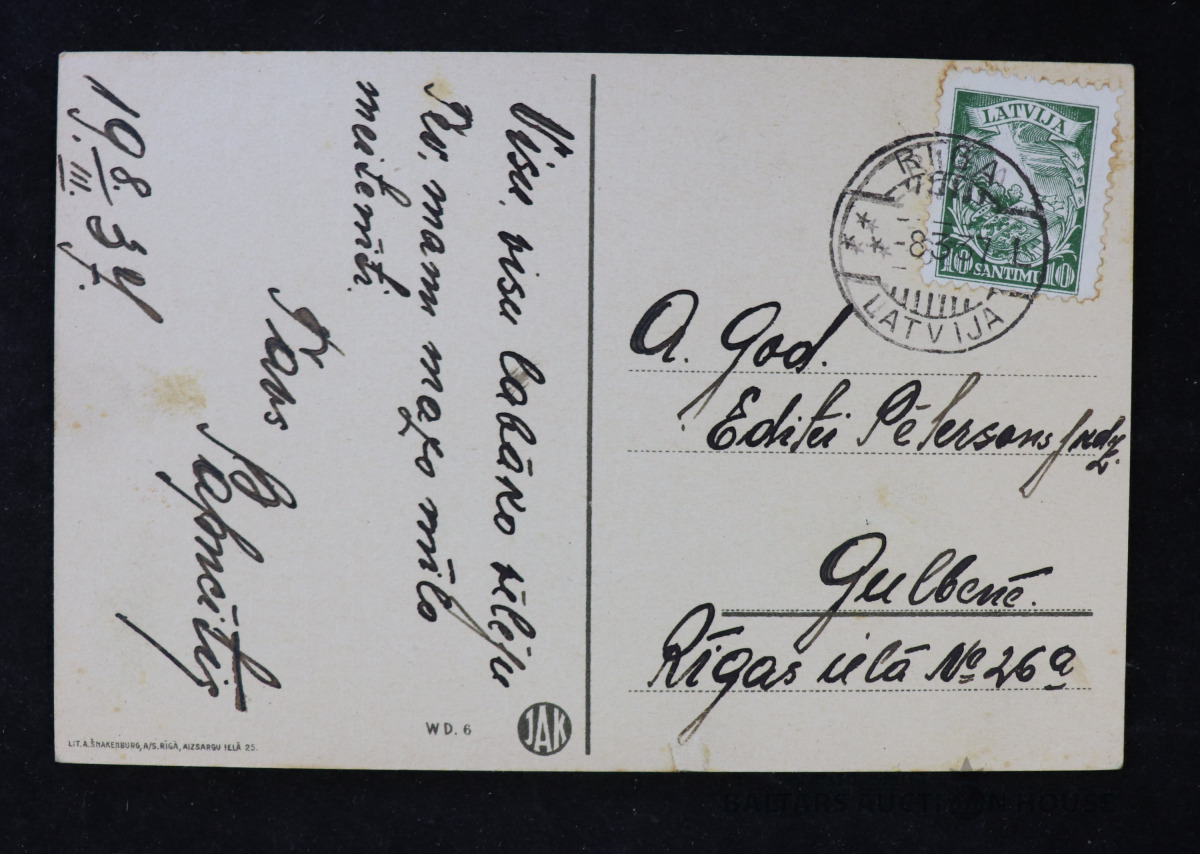 Visu, visu labāko vēlēju
no. mam mazo mīlo
meitenīti.
Jans
19 8. III. 34
A. God.
Editei Pētersons jndz.
Gulbenē.
Rīgas ielā № 26a
LATVIJA
10 SANTIMU 10
RIGA
LATVIJA
WD. 6
JAK
LIT. A. ŠNAKENBURG, A/S. RĪGĀ, AIZSARGU IELĀ 25.
BALTARS AUCTION HOUSE